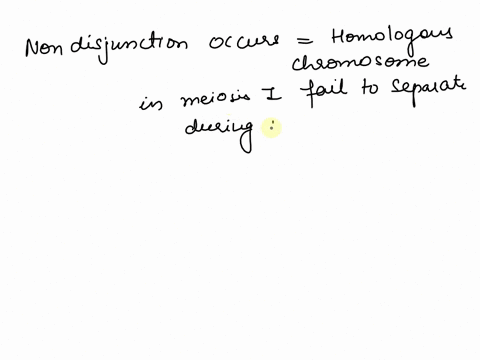 Non disjunction occurs = Homologous
chromosome
in meiosis I fail to separate
during :